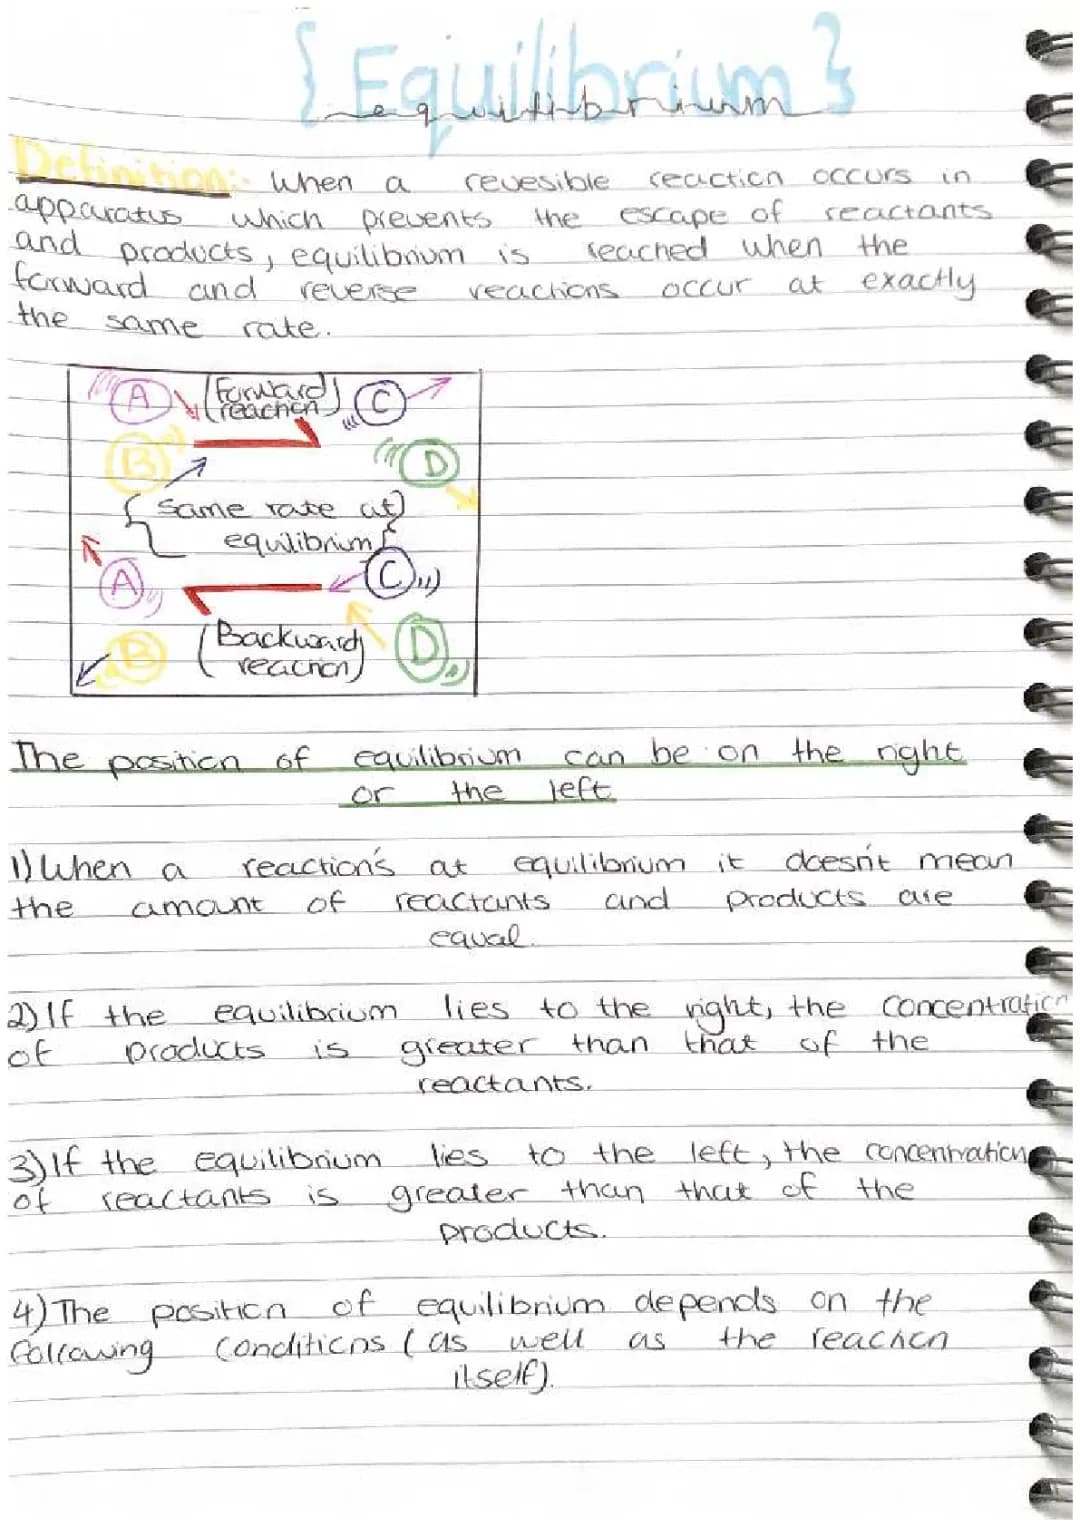 { Equilibrium }
equilibrium
Definition:- When a revesible reaction occurs in
apparatus which prevents the escape of reactants
and products, equilibrium is reached when the
forward and reverse reactions occur at exactly
the same rate.
A (Forward reaction) C
B D
{ same rate at equilibrium }
A C
B (Backward reaction) D
The position of equilibrium can be on the right
or the left
1) When a reaction's at equilibrium it doesn't mean
the amount of reactants and products are
equal.
2) If the equilibrium lies to the right, the concentration
of products is greater than that of the
reactants.
3) If the equilibrium lies to the left, the concentration
of reactants is greater than that of the
products.
4) The position of equilibrium depends on the
following conditions (as well as the reaction
itself).